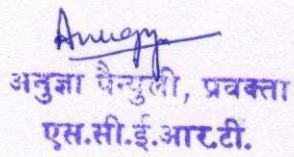 Anugya
अनुज्ञा पैन्युली, प्रवक्ता
एस.सी.ई.आर.टी.